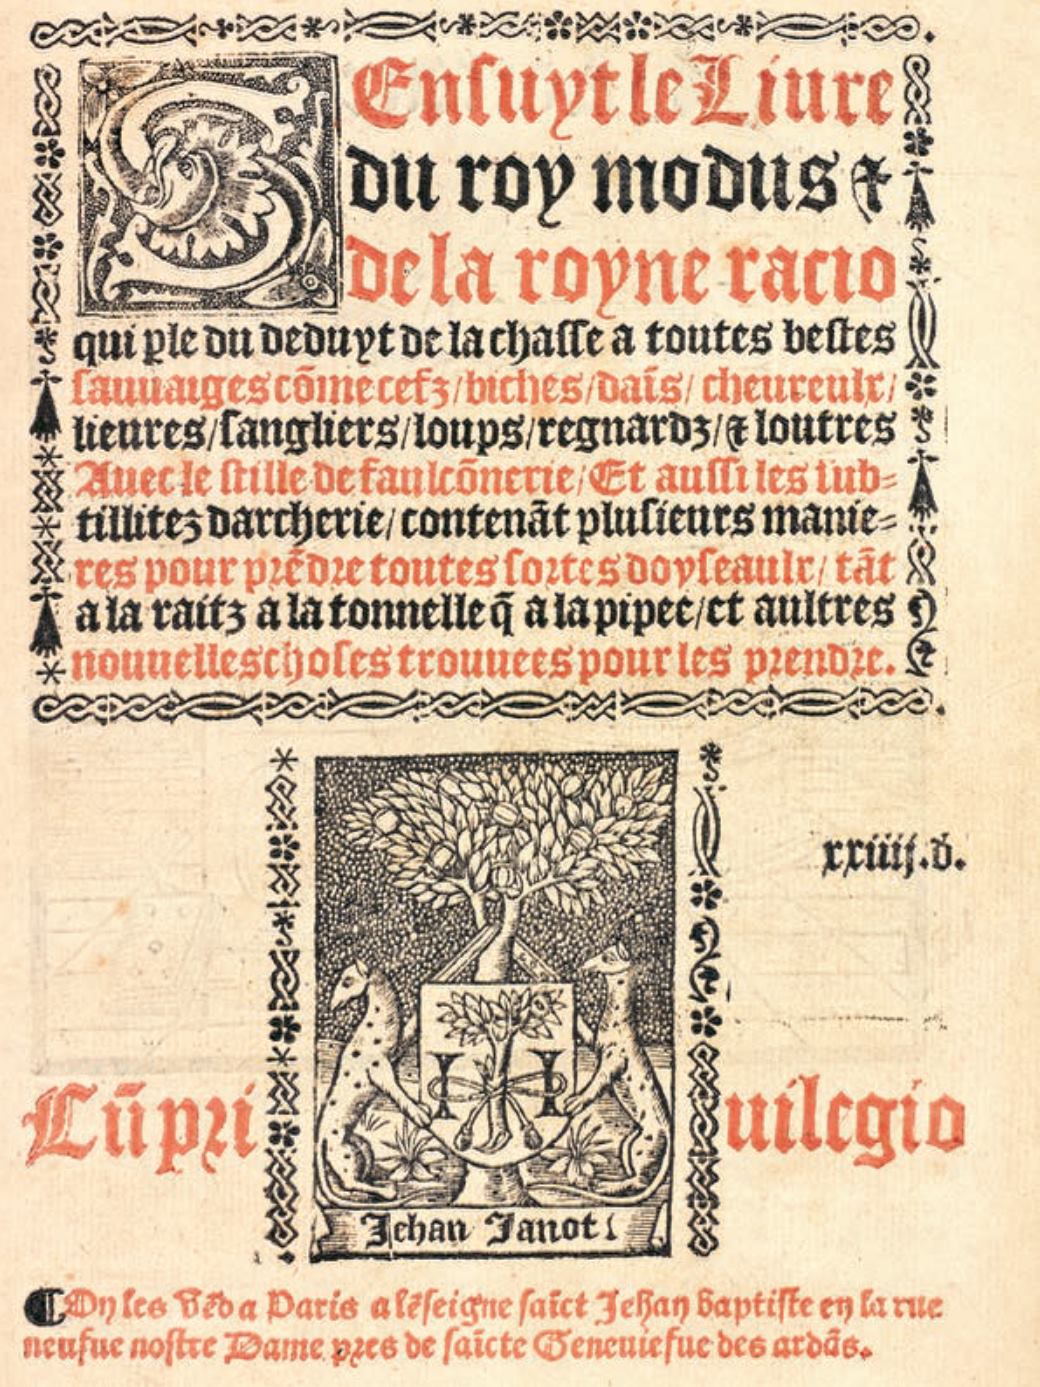 SEnsuyt le Liure
du roy modus ⁊
de la royne racio
qui ꝑle du deduyt de la chasse a toutes bestes
sauuaiges cõme cefz/biches/daĩs/ cheureulx/
lieures/sangliers/loups/regnardz/⁊ loutres
Auec le stille de faulcõnerie/Et aussi les sub-
tillitez darcherie/contenãt plusieurs manie-
res pour prẽdre toutes sortes doyseaulx/ tãt
a la raitz a la tonnelle q̃ a la pipee/et aultres
nouuelles choses trouuees pour les prendre.
xxiiij.d.
I H
Cũ pri
uilegio
Jehan Janot
¶On les vẽd a Paris a lẽseigne saĩct Jehan baptiste en la rue
neufue nostre Dame pres de saĩcte Geneuiefue des ardãs.